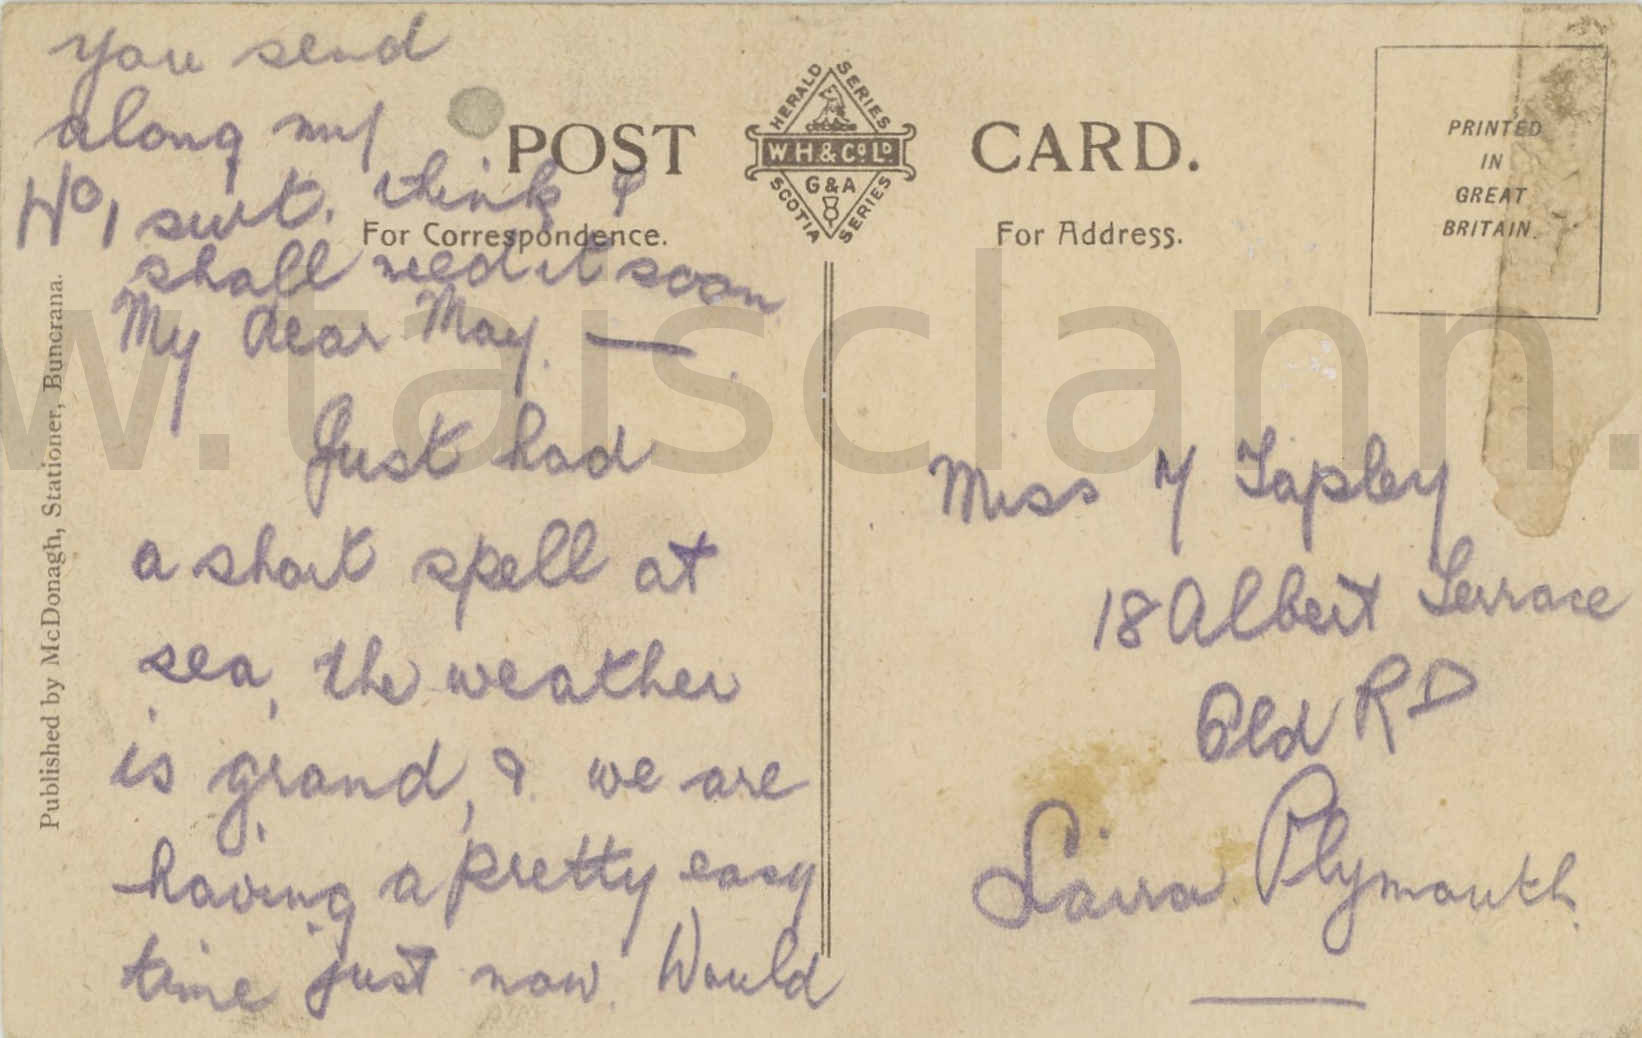 you send
along my
No 1 suit. think I
shall need it soon
My dear May. —
Just had
a short spell at
sea, the weather
is grand, & we are
having a pretty easy
time just now. Would
POST CARD.
For Correspondence.
For Address.
HERALD SERIES
W.H. & Co. Ld
G & A
SCOTIA SERIES
PRINTED
IN
GREAT
BRITAIN.
Published by McDonagh, Stationer, Buncrana.
Miss Y Tapley
18 Albert Terrace
Old RD
Laira Plymouth.
w.taisclann.